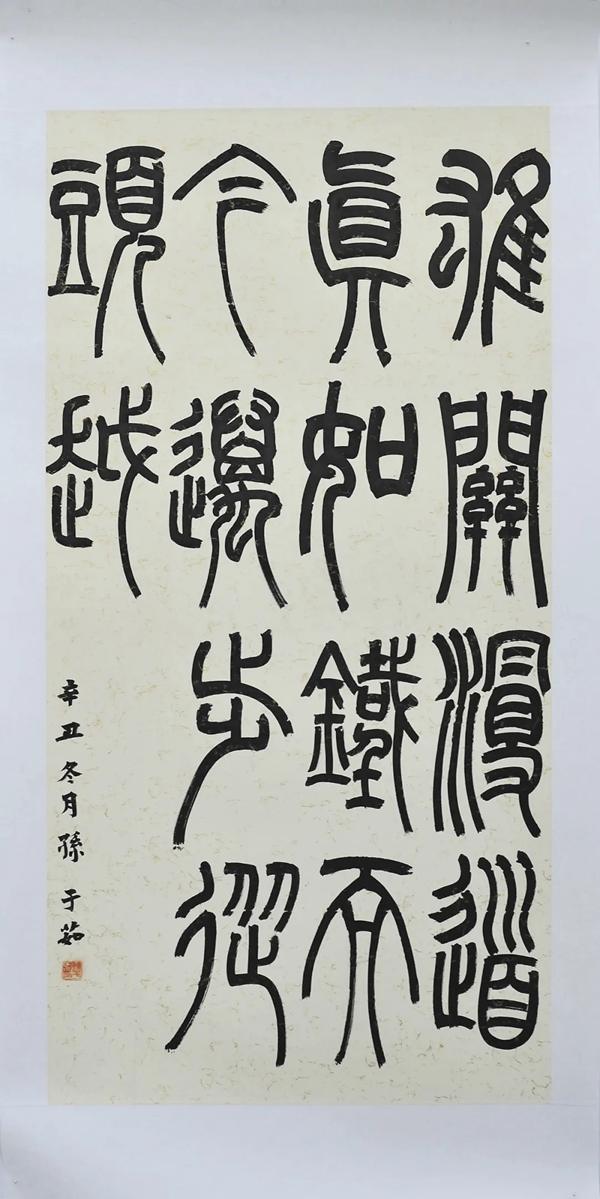 雄關漫道
眞如鐵而
今邁步從
頭越
辛丑冬月孫于茹